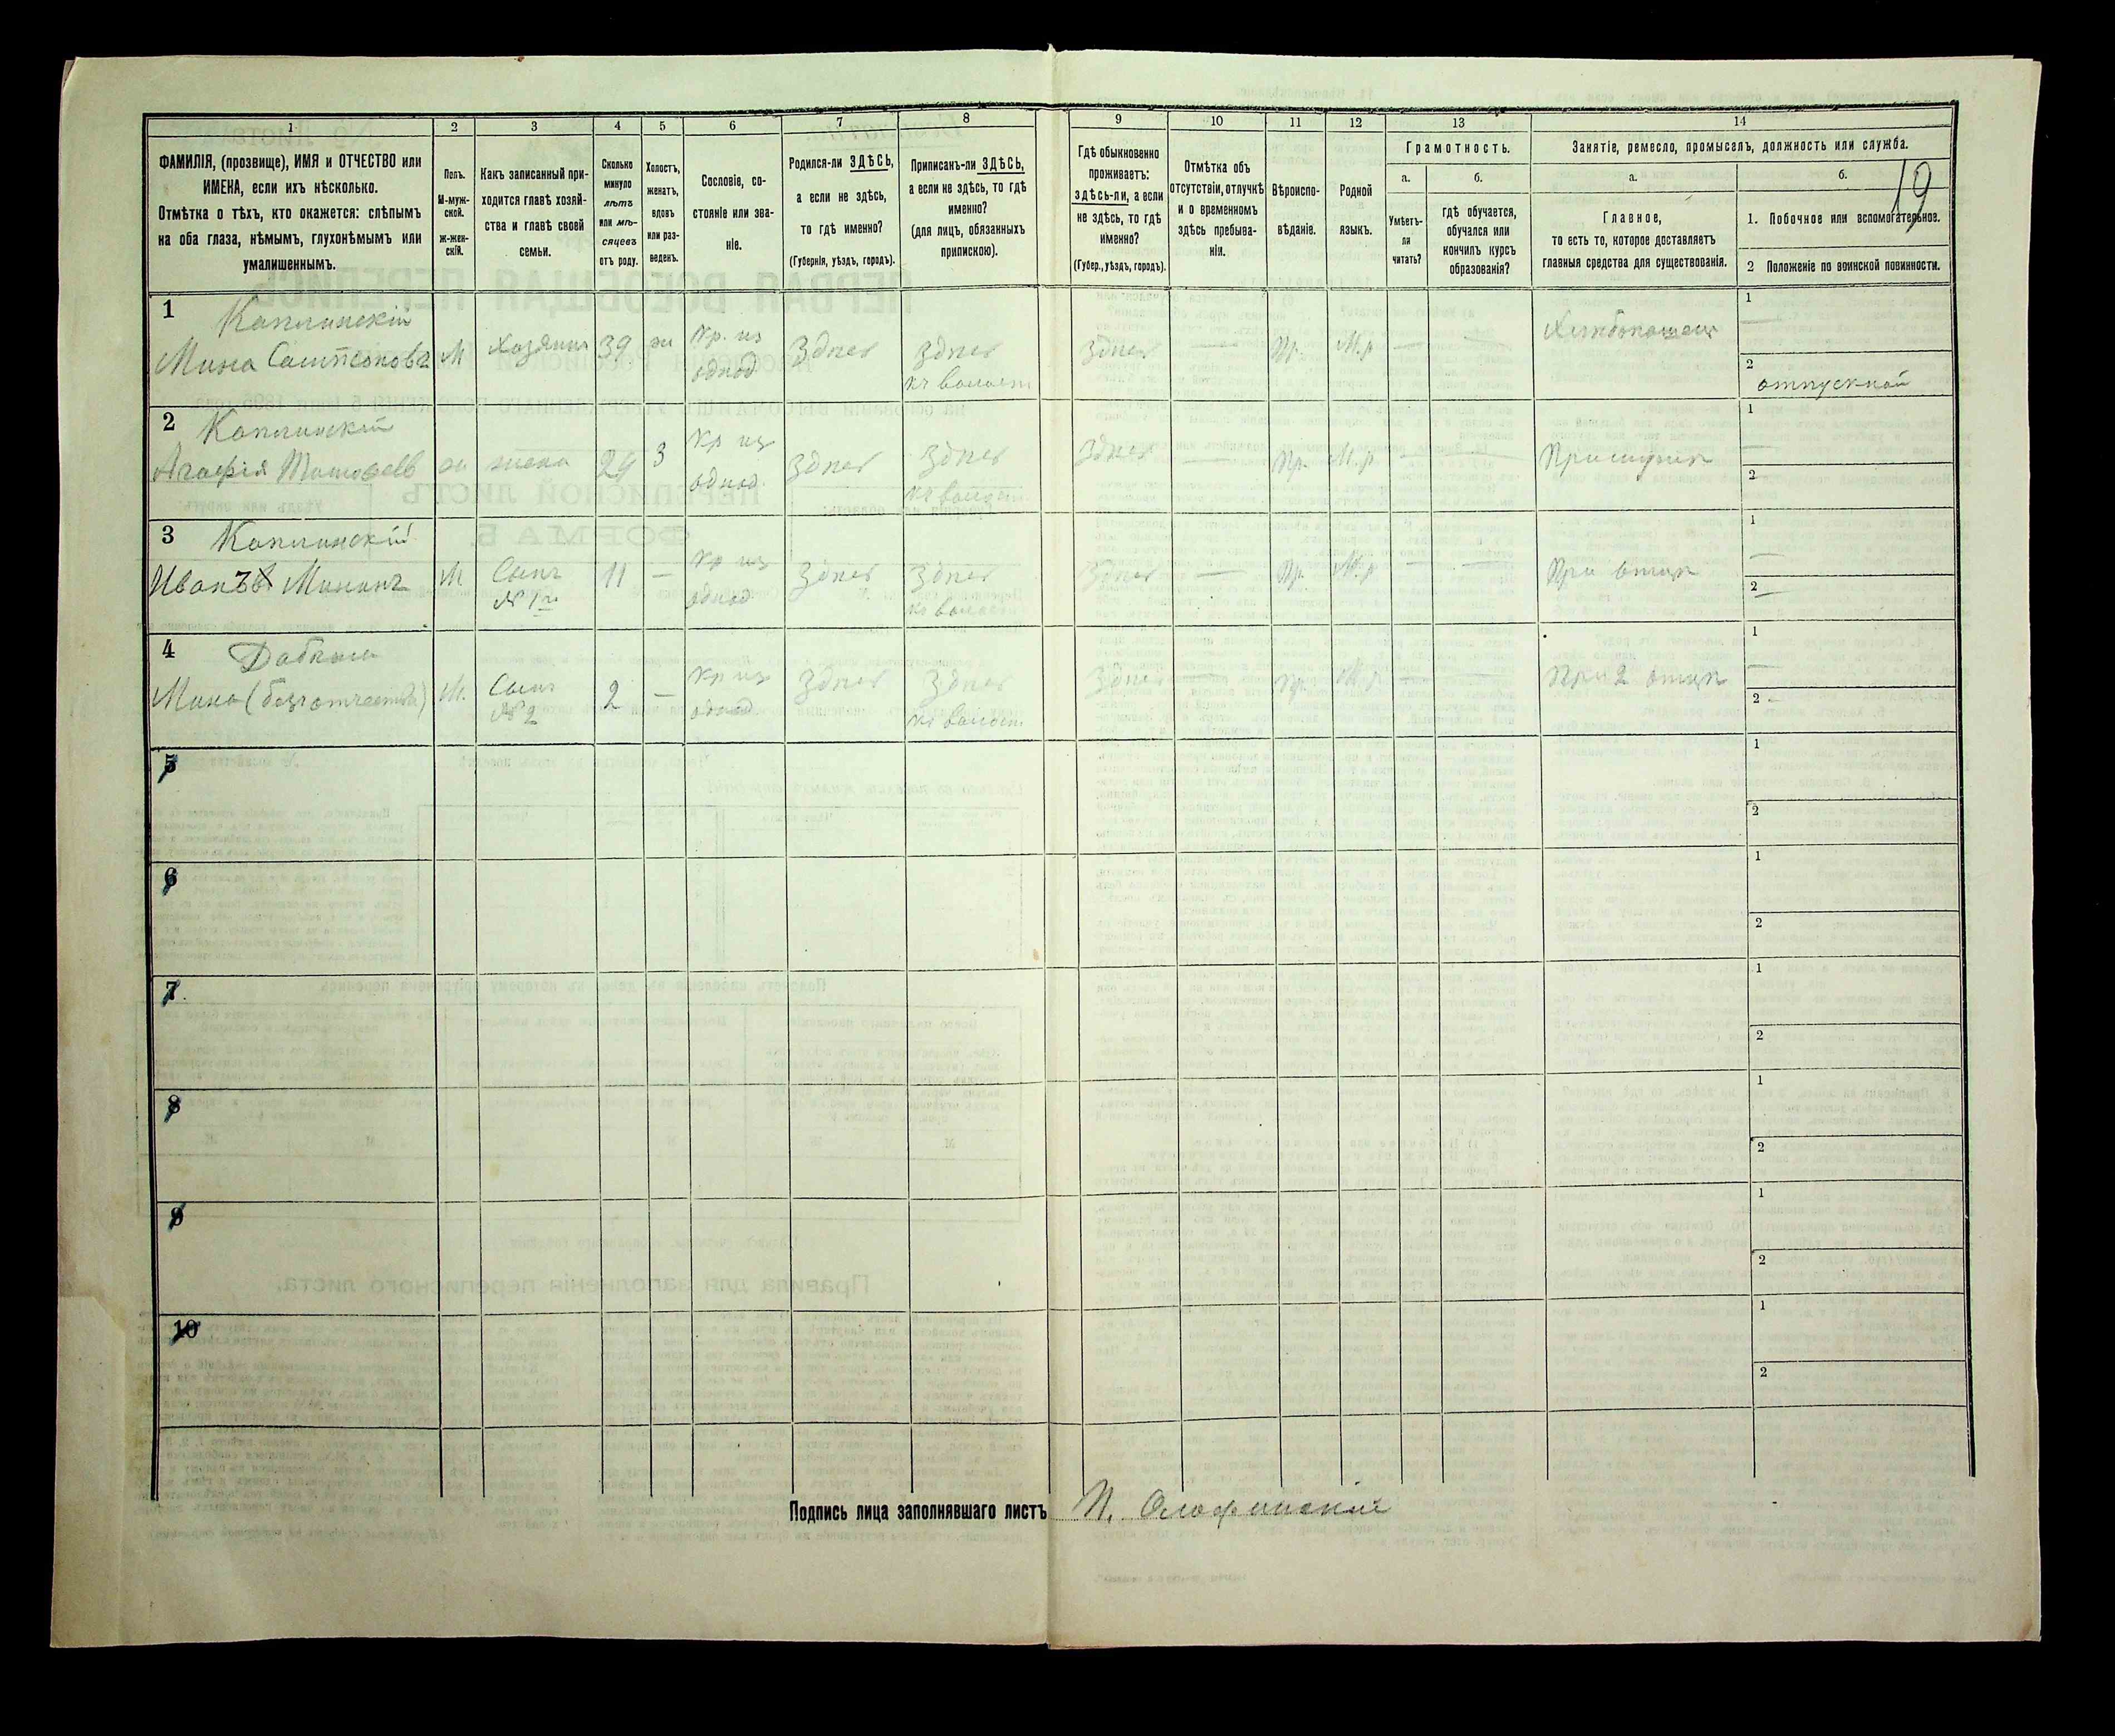 19
1 2 3 4 5 6 7 8 9 10 11 12 13 14
ФАМИЛІЯ, (прозвище), ИМЯ и ОТЧЕСТВО или
ИМЕНА, если ихъ нѣсколько.
Отмѣтка о тѣхъ, кто окажется: слѣпымъ
на оба глаза, нѣмымъ, глухонѣмымъ или
умалишеннымъ.
Полъ.
М-муж-
ской.
ж-жен-
скій.
Какъ записанный при-
ходится главѣ хозяй-
ства и главѣ своей
семьи.
Сколько
минуло
лѣтъ
или мѣ-
сяцевъ
отъ роду.
Холостъ,
женатъ,
вдовъ
или раз-
веденъ.
Сословіе, со-
стояніе или зва-
ніе.
Родился-ли ЗДѢСЬ,
а если не здѣсь,
то гдѣ именно?
(Губернія, уѣздъ, городъ).
Приписанъ-ли ЗДѢСЬ,
а если не здѣсь, то гдѣ
именно?
(для лицъ, обязанныхъ
припискою).
Гдѣ обыкновенно
проживаетъ:
ЗДѢСЬ-ли, а если
не здѣсь, то гдѣ
именно?
(Губер., уѣздъ, городъ).
Отмѣтка объ
отсутствіи, отлучкѣ
и о временномъ
здѣсь пребыва-
ніи.
Вѣроиспо-
вѣданіе.
Родной
языкъ.
Грамотность.
а.
Умѣетъ-
ли
читать?
б.
гдѣ обучается,
обучался или
кончилъ курсъ
образованія?
Занятіе, ремесло, промыселъ, должность или служба.
а.
Главное,
то есть то, которое доставляетъ
главныя средства для существованія.
б.
1. Побочное или вспомогательное.
2 Положеніе по воинской повинности.
1 Каплинскій
Мина М Хозяинъ 39 ж Кр. из однод. Здѣсь Здѣсь — Здѣсь — Пр. М.р — —
1 —
2 отпускной
2 Каплинскій
Агафія ж жена 29 З Кр из однод. Здѣсь Здѣсь Здѣсь — Пр. М.р — —
1 —
2
3 Каплинскій
Иванъ М Сынъ № 1го 11 — Кр из однод Здѣсь Здѣсь Здѣсь — Пр. М.р — — При отцѣ
1 —
2 —
4
Мина (безъ отчества) М. Сынъ № 2 2 — Кр из однод. Здѣсь Здѣсь Здѣсь — Пр. М.р — —
1 —
2 -
5
1
2
6
1
2
7.
1
2
8
1
2
9
1
2
10
1
2
Подпись лица заполнявшаго листъ